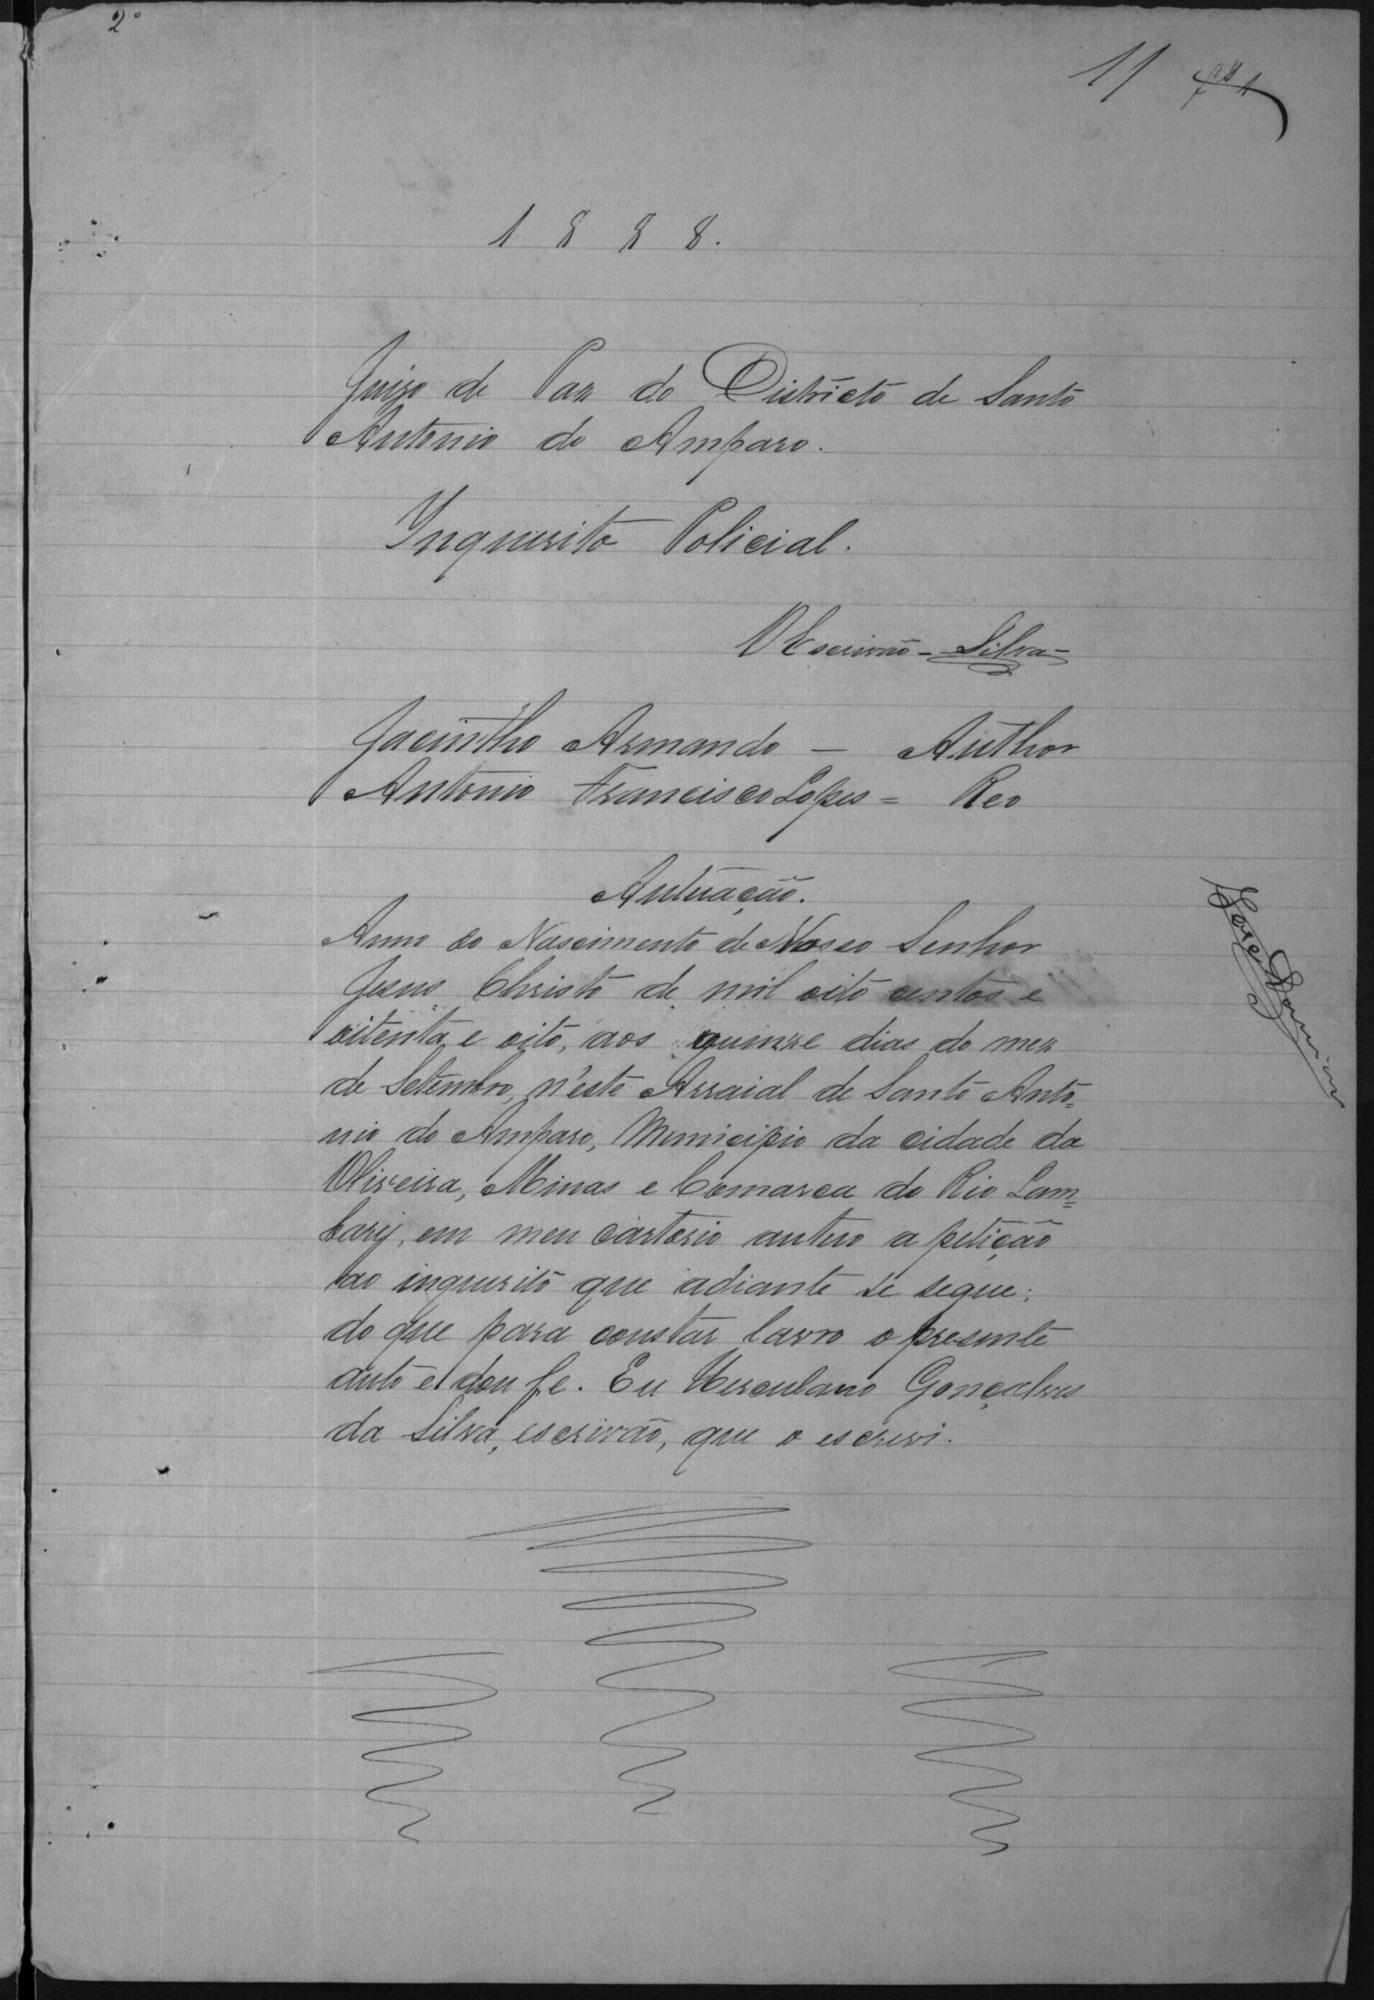 2º
11 fls 1
1888.
Juizo de Paz do Districto de Santo
Antonio do Amparo.
Inquerito Policial.
O Escrivão - Silva -
Jacintho Armando - Author
Antonio Francisco Lopes = Reo
Autuação.
Anno do Nascimento de Nosso Senhor
Jesus Christo de mil oito centos e
oitenta e oito, aos quinze dias do mez
de Setembro, n'este Arraial de Santo Anto=
nio do Amparo, Municipio da cidade da
Oliveira, Minas e Comarca do Rio Lam=
bary, em meu cartorio autuo a petição
ao inquerito que adiante se segue:
do que para constar lavro o presente
auto e dou fe. Eu Herculano Gonçalves
da Silva, escrivão, que o escrevi.